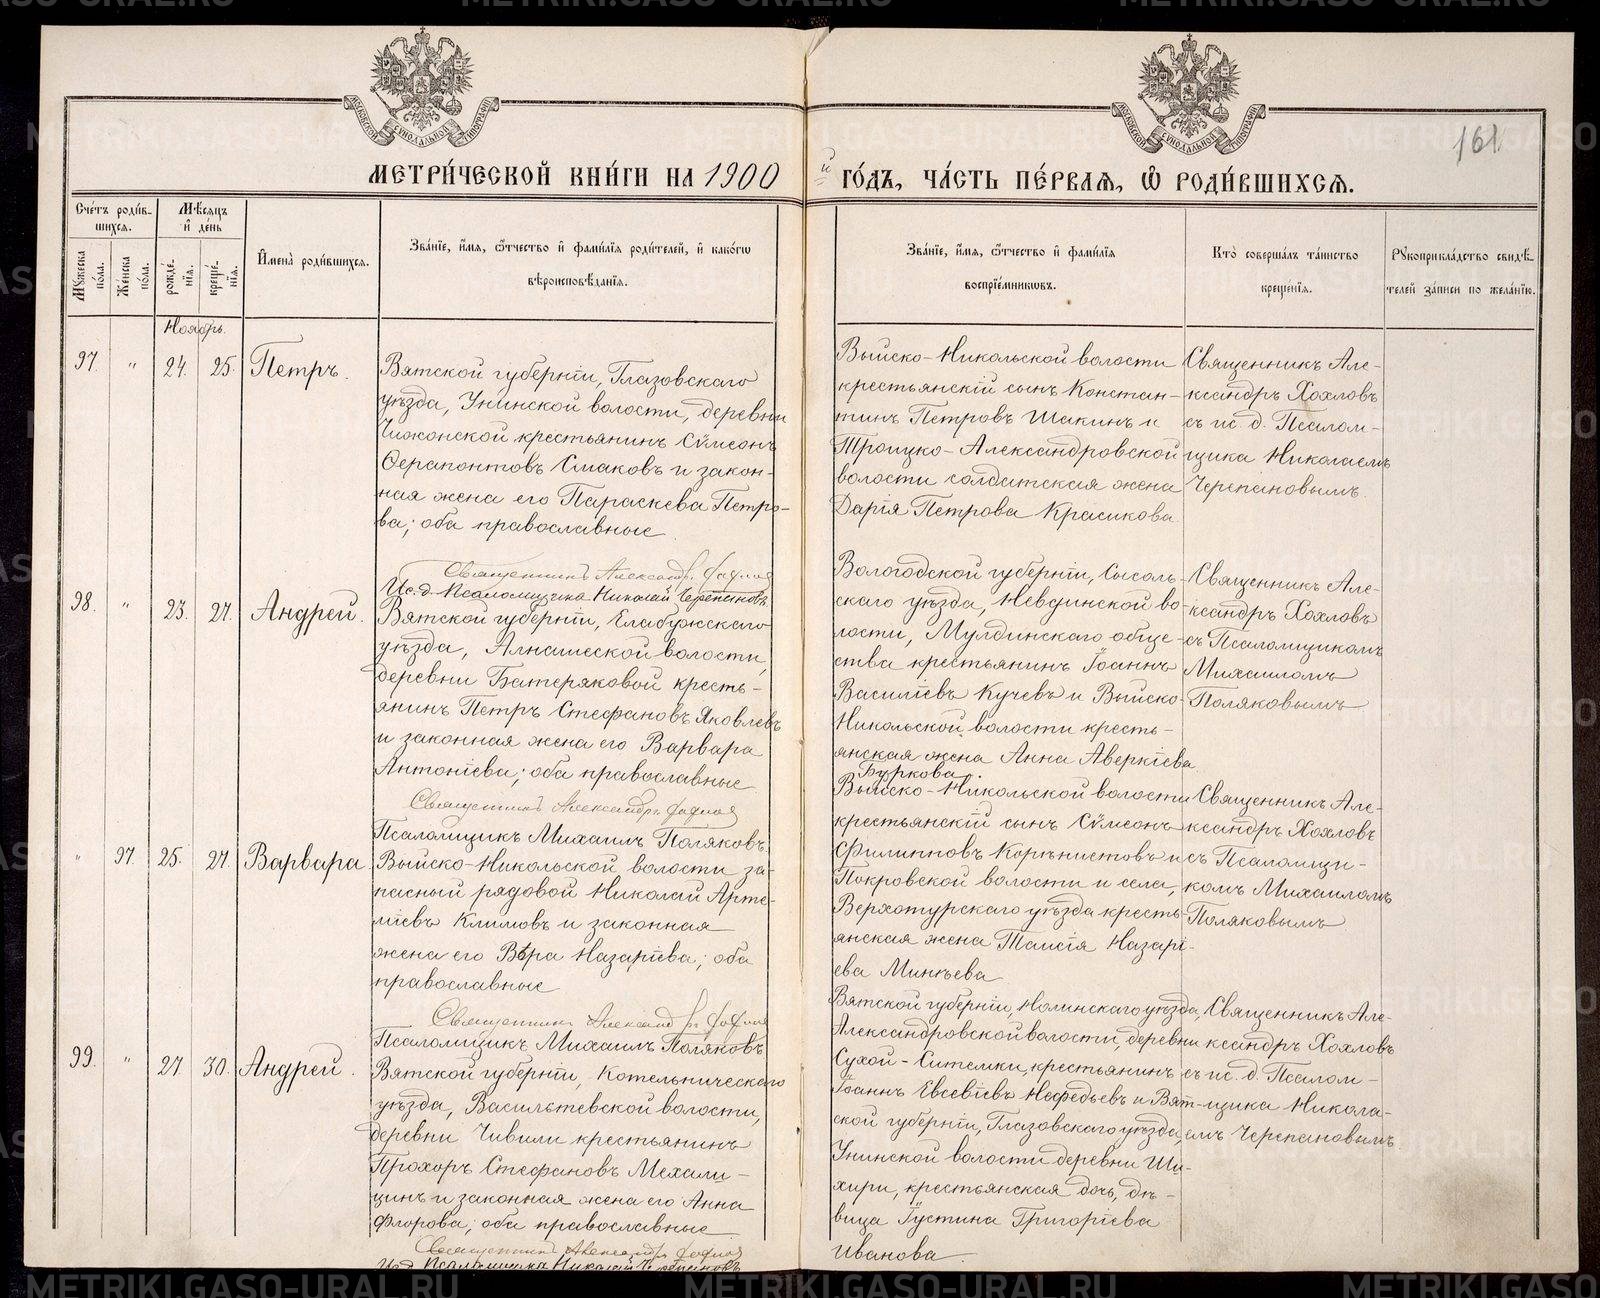 METRIKI.GASO-URAL.RU
161
МЕТРИ́ЧЕСКОЙ КНИ́ГИ НА 1900 й ГО́ДЪ, ЧА́СТЬ ПЕ́РВАѦ, Ѡ҆ РОДИ́ВШИХСѦ.
Сче́тъ роди́в-
шихся.
Мѣ́сяцъ
и҆ де́нь
Мꙋ́жеска
по́ла.
Же́нска
по́ла.
рожде́-
нїѧ.
креще́-
нїѧ.
И҆мена̀ роди́вшихсѧ.
Зва́нїе, и҆́мѧ, ѻ҆́тчество и҆ фами́лїѧ роди́телей, и҆ како́гѡ
вѣроисповѣ́данїѧ.
Зва́нїе, и҆́мѧ, ѻ҆́тчество и҆ фами́лїѧ
воспрїе́мникѡвъ.
Кто̀ соверша́лъ та́инство
креще́нїѧ.
Рꙋкоприкла́дство свидѣ́-
телей за́писи по жела́нїю.
Ноябрь.
97. " 24. 25. Петръ.
Вятской губернiи, Глазовскаго
уѣзда, Унинской волости, деревни
Чижонской крестьянинъ Сѵмеонъ
Ѳерапонтовъ Смаковъ и закон-
ная жена его Параскева Петро-
ва; оба православные
Священникъ Александръ Хохловъ
Ис. д. Псаломщика Николай Черепановъ
Выйско-Никольской волости
крестьянскiй сынъ Констан-
тинъ Петровъ Шакинъ и
Троицко-Александровской
волости солдатская жена
Дарiя Петрова Красикова
Священникъ Але-
ксандръ Хохловъ
съ ис. д. Псалом-
щика Николаемъ
Черепановымъ.
98. " 23. 27. Андрей.
Вятской губернiи, Елабужскаго
уѣзда, Алнашеской волости,
деревни Батеряковой кресть-
янинъ Петръ Стефановъ Яковлевъ
и законная жена его Варвара
Антонiева; оба православные
Священникъ Александръ Хохловъ
Псаломщикъ Михаилъ Поляковъ.
Вологодской губернiи, Сысоль-
скаго уѣзда, Небдинской во-
лости, Мулдинскаго обще-
ства крестьянинъ Iоаннъ
Василiевъ Кучевъ и Выйско-
Никольской волости кресть-
янская жена Анна Аверкiева
Буркова.
Священникъ Але-
ксандръ Хохловъ
съ Псаломщикомъ
Михаиломъ
Поляковымъ
" 97. 25. 27. Варвара
Выйско-Никольской волости за-
пасный рядовой Николай Арте-
мiевъ Климовъ и законная
жена его Вѣра Назарiева; оба
православные
Священникъ Александръ Хохловъ
Псаломщикъ Михаилъ Поляковъ
Выйско-Никольской волости
крестьянскiй сынъ Сѵмеонъ
Филипповъ Корѣнистовъ и
Покровской волости и села,
Верхотурскаго уѣзда кресть-
янская жена Таисiя Назарi-
ева Минѣева
Священникъ Але-
ксандръ Хохловъ
съ Псаломщи-
комъ Михаиломъ
Поляковымъ
99. " 27. 30. Андрей.
Вятской губернiи, Котельническаго
уѣзда, Васильтевской волости,
деревни Чивили крестьянинъ
Прохоръ Стефановъ Мехали-
цинъ и законная жена его Анна
Флорова; оба православные
Священникъ Александръ Хохловъ
Ис. д. Псаломщика Николай Черепановъ
Вятской губернiи, Нолинскаго уѣзда,
Александровской волости, деревни
Сухой-Ситемки, крестьянинъ
Iоаннъ Евсевiевъ Нефедьевъ и Вят-
ской губернiи, Глазовскаго уѣзда,
Унинской волости деревни Ши-
хири, крестьянская дочь, дѣ-
вица Iустина Григорiева
Иванова
Священникъ Але-
ксандръ Хохловъ
съ ис. д. Псалом-
щика Никола-
емъ Черепановымъ